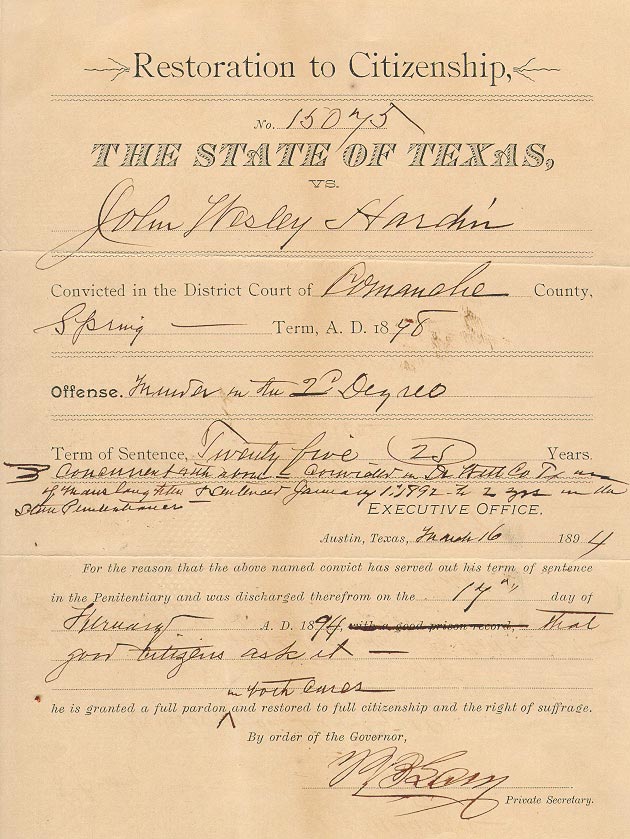 Restoration to Citizenship,
No. 15075
THE STATE OF TEXAS,
VS.
John Wesley Hardin
Convicted in the District Court of Comanche County,
Spring — Term, A. D. 1898
Offense. Murder in the 2d Degree
Term of Sentence, Twenty five (25) Years.
Concurrent with above — Convicted in De Witt Co Tx
of manslaughter & sentenced January 1st 1892 to 2 yrs in the
State Penitentiary
EXECUTIVE OFFICE.
Austin, Texas, March 16 1894
For the reason that the above named convict has served out his term of sentence
in the Penitentiary and was discharged therefrom on the 17" day of
February A. D. 1894, with a good prison record, that
good citizens ask it —
in both cases
he is granted a full pardon and restored to full citizenship and the right of suffrage.
By order of the Governor,
Private Secretary.